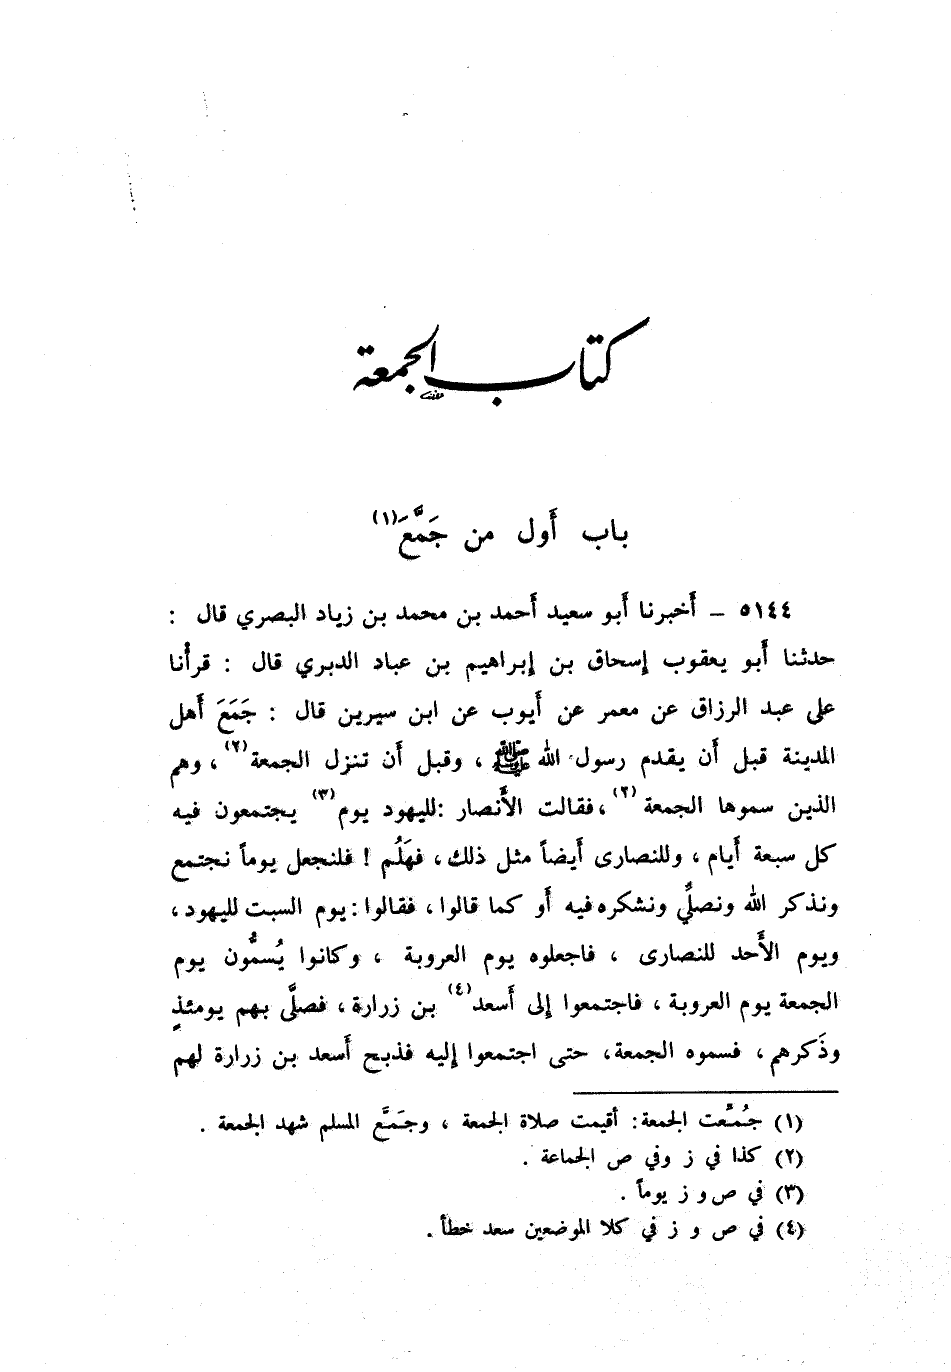 كتاب الجمعة
باب أَول من جَمَّعَ(١)
٥١٤٤ – أَخبرنا أَبو سعيد أَحمد بن محمد بن زياد البصري قال :
حدثنا أَبو يعقوب إِسحاق بن إِبراهيم بن عباد الدبري قال : قرأْنا
على عبد الرزاق عن معمر عن أَيوب عن ابن سيرين قال : جَمَعَ أَهل
المدينة قبل أَن يقدم رسول الله ﷺ ، وقبل أَن تنزل الجمعة(٢)، وهم
الذين سموها الجمعة(٢)، فقالت الأَنصار :لليهود يوم(٣) يجتمعون فيه
كل سبعة أَيام ، وللنصارى أَيضاً مثل ذلك، فهَلُم ! فلنجعل يوماً نجتمع
ونذكر الله ونصلِّي ونشكره فيه أَو كما قالوا ، فقالوا : يوم السبت لليهود،
ويوم الأَحد للنصارى ، فاجعلوه يوم العروبة ، وكانوا يُسمُّون يوم
الجمعة يوم العروبة ، فاجتمعوا إِلى أَسعد(٤) بن زرارة ، فصلَّى بهم يومئذٍ
وذَكرهم ، فسموه الجمعة، حتى اجتمعوا إِليه فذبح أَسعد بن زرارة لهم
(١) جُمِّعت الجمعة: أقيمت صلاة الجمعة ، وجَمَّع المسلم شهد الجمعة .
(٢) كذا في ز وفي ص الجماعة .
(٣) في ص و ز يوماً .
(٤) في ص و ز في كلا الموضعين سعد خطأ .